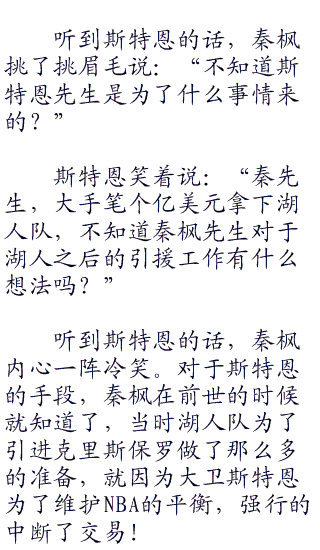 听到斯特恩的话，秦枫
挑了挑眉毛说：“不知道斯
特恩先生是为了什么事情来
的？”
斯特恩笑着说：“秦先
生，大手笔个亿美元拿下湖
人队，不知道秦枫先生对于
湖人之后的引援工作有什么
想法吗？”
听到斯特恩的话，秦枫
内心一阵冷笑。对于斯特恩
的手段，秦枫在前世的时候
就知道了，当时湖人队为了
引进克里斯保罗做了那么多
的准备，就因为大卫斯特恩
为了维护NBA的平衡，强行的
中断了交易！